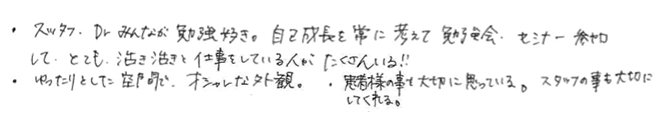 ・ スタッフ、Dr みんなが 勉強好き。自己成長を常に考えて勉強会、セミナー参加
して、とても、活き活きと仕事をしている人がたくさんいる!!
・ ゆったりとした空間で、オシャレな外観。 ・患者様の事を大切に思っている。スタッフの事も大切に
してくれる。